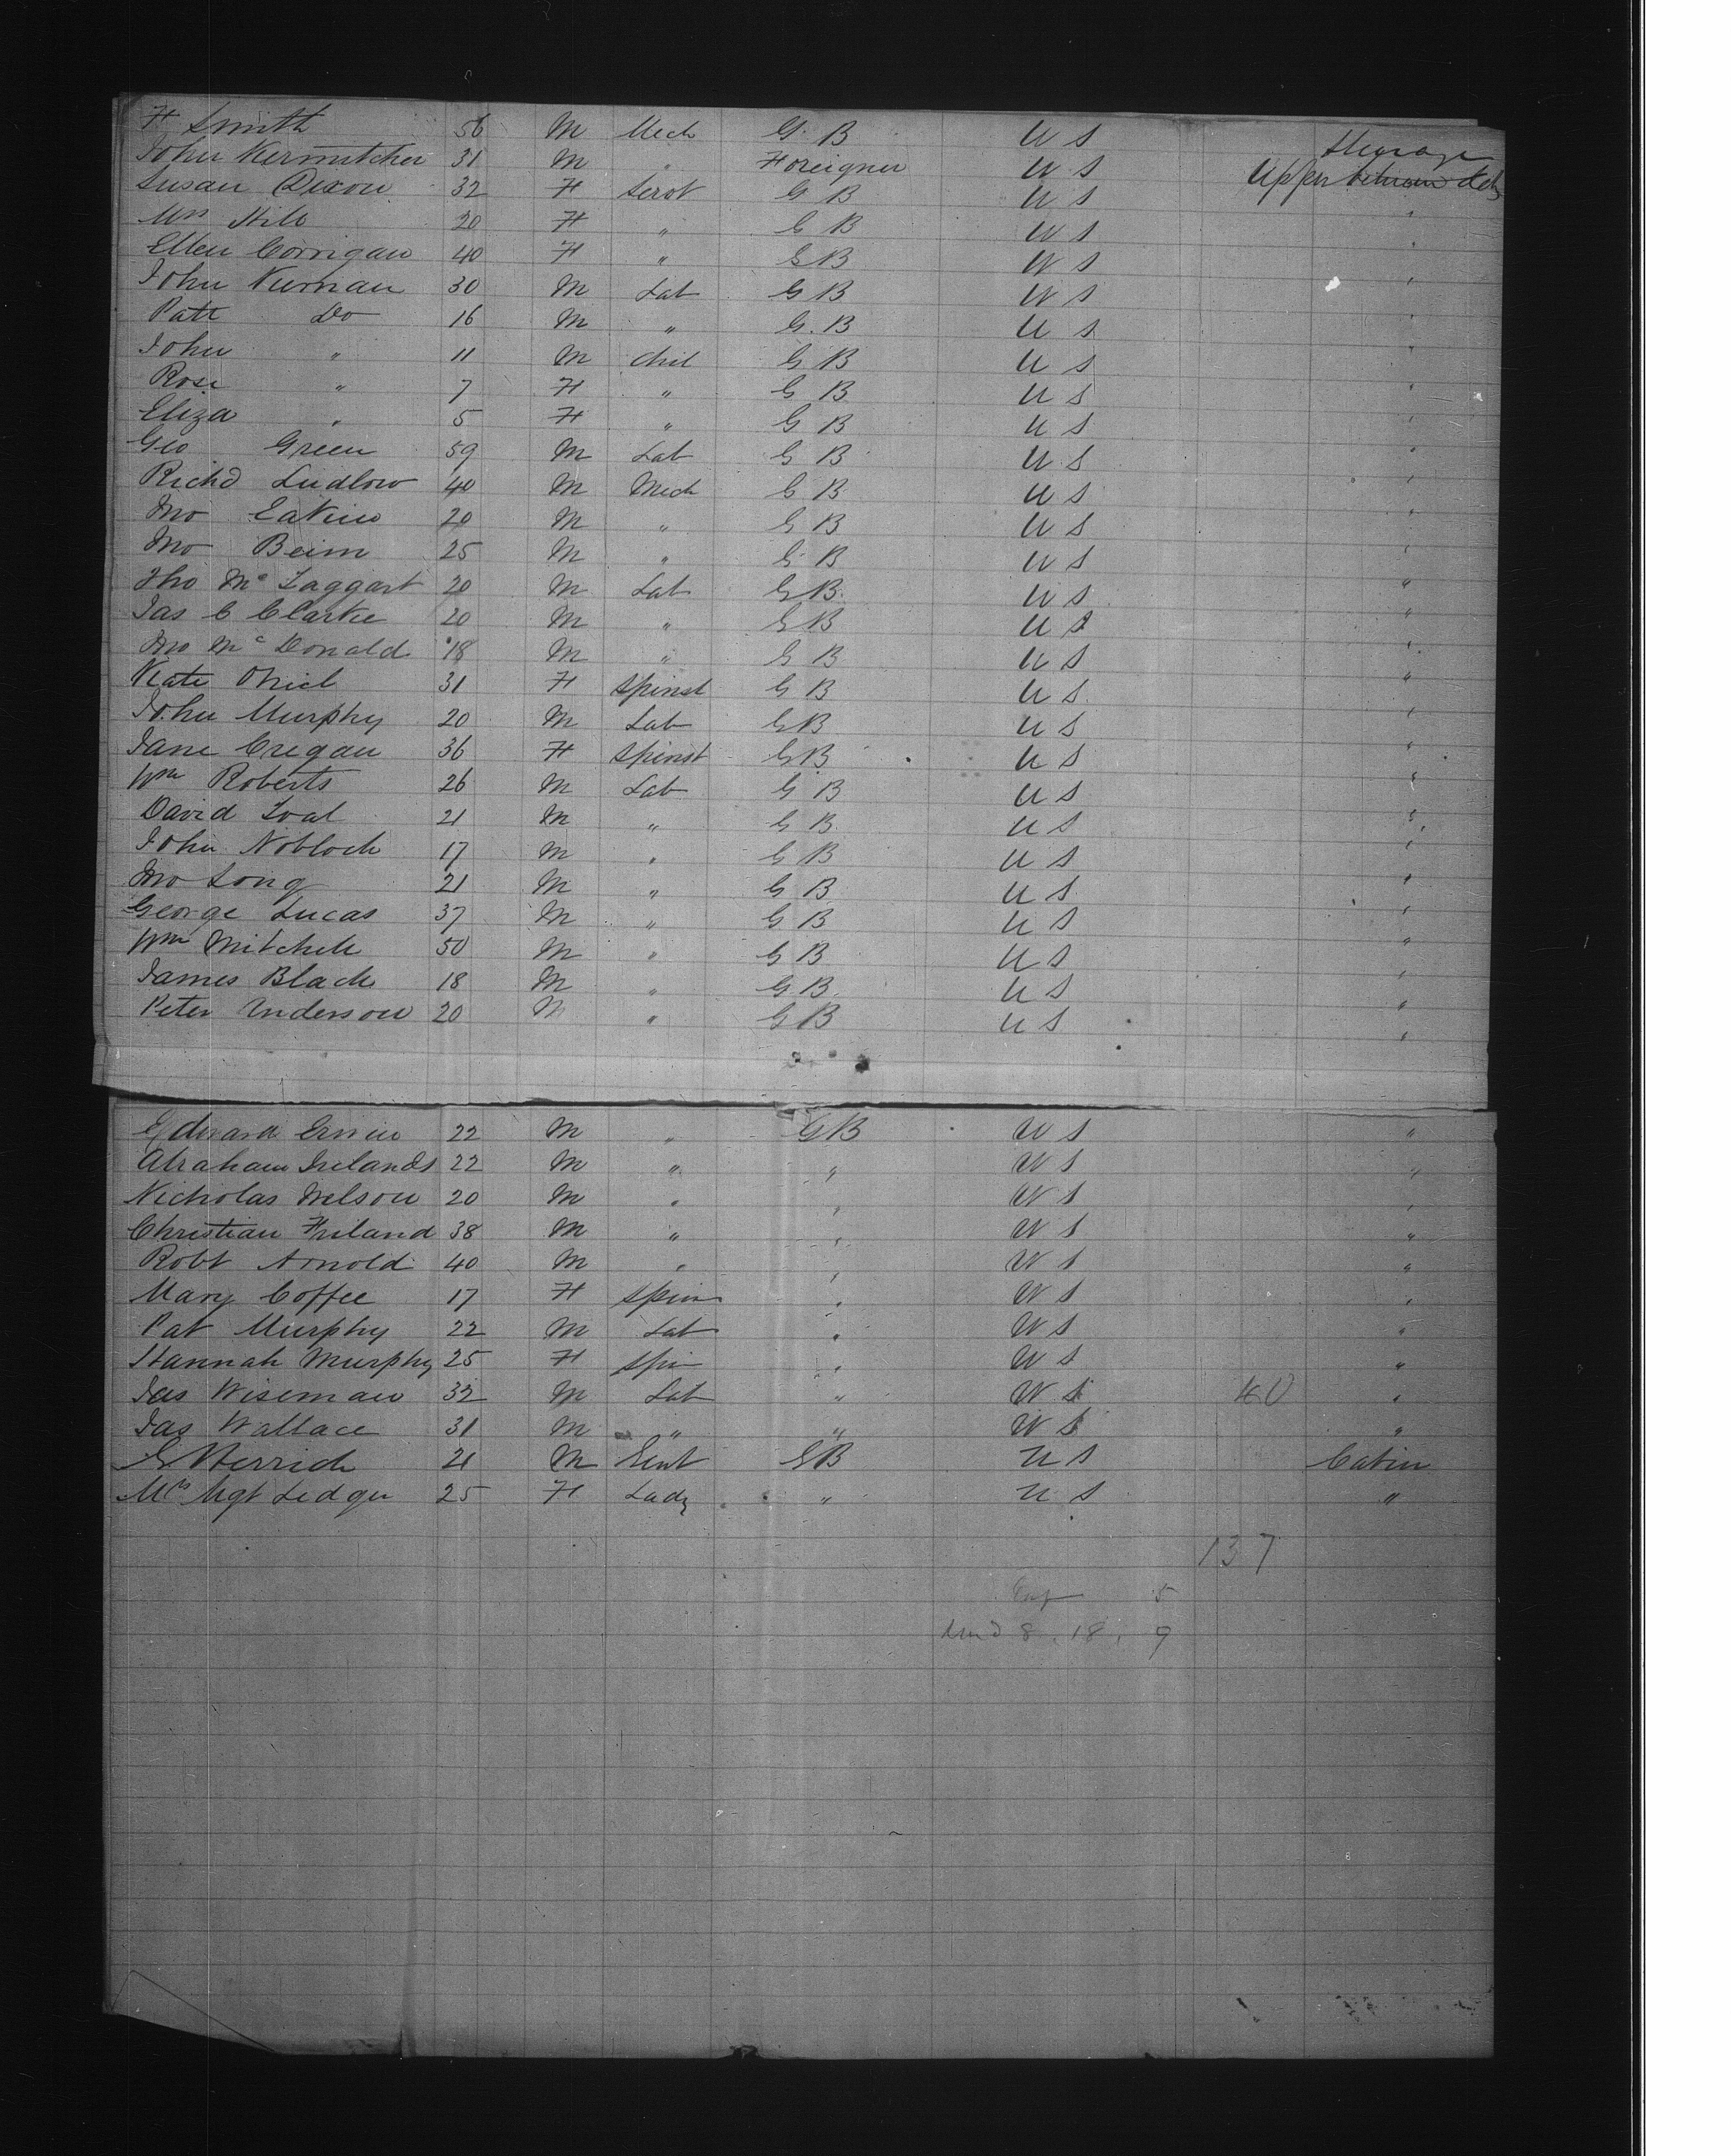 F Smith 56 M Mech G. B U S Steerage
John Kermitcher 31 M " Foreigner U S Upper between deck
Susan Dixon 32 F Servt G B U S "
Mrs Hill 20 F " G B U S "
Ellen Corrigan 40 F " G B U S "
John Kiernan 30 M Lab G B U S "
Patt Do 16 M " G. B U S "
John " 11 M chil G B U S "
Rose " 7 F " G B U S "
Eliza " 5 F " G B U S "
Geo Green 59 M Lab G B U S "
Richd Ludlow 40 M Mech G B U S "
Jno Eakin 20 M " G B U S "
Jno Beirn 25 M " G B U S "
Tho Mc Taggart 20 M Lab G B U S "
Jas C Clarke 20 M " G B U S "
Jno Mc Donald 18 M " G B U S "
Kate 31 F Spinst G B U S "
John Murphy 20 M Lab G B U S "
Jane Cregan 36 F Spinst G B U S "
Wm Roberts 26 M Lab G B U S "
David 21 M " G B U S "
John Nobloch 17 M " G B U S "
Jno Long 21 M " G B U S "
George Lucas 37 M " G B U S "
Wm Mitchell 50 M " G B U S "
James Black 18 M " G B U S "
Peter Anderson 20 M " G B U S "
Edward Erwin 22 M " G B U S "
Abraham Irelands 22 M " " U S "
Nicholas Nelson 20 M " " U S "
Christian Freland 38 M " " U S "
Robt Arnold 40 M " " U S "
Mary Coffee 17 F Spin " U S "
Pat Murphy 22 M Lab " U S "
Hannah Murphy 25 F Spin " U S "
Jas Wiseman 32 M Lab " U S 40 "
Jas Wallace 31 M " " U S "
G Herrick 21 M Gent G B U S Cabin
Mrs Mgt Ledger 25 F Lady " U S "
137
5
8, 18, 9